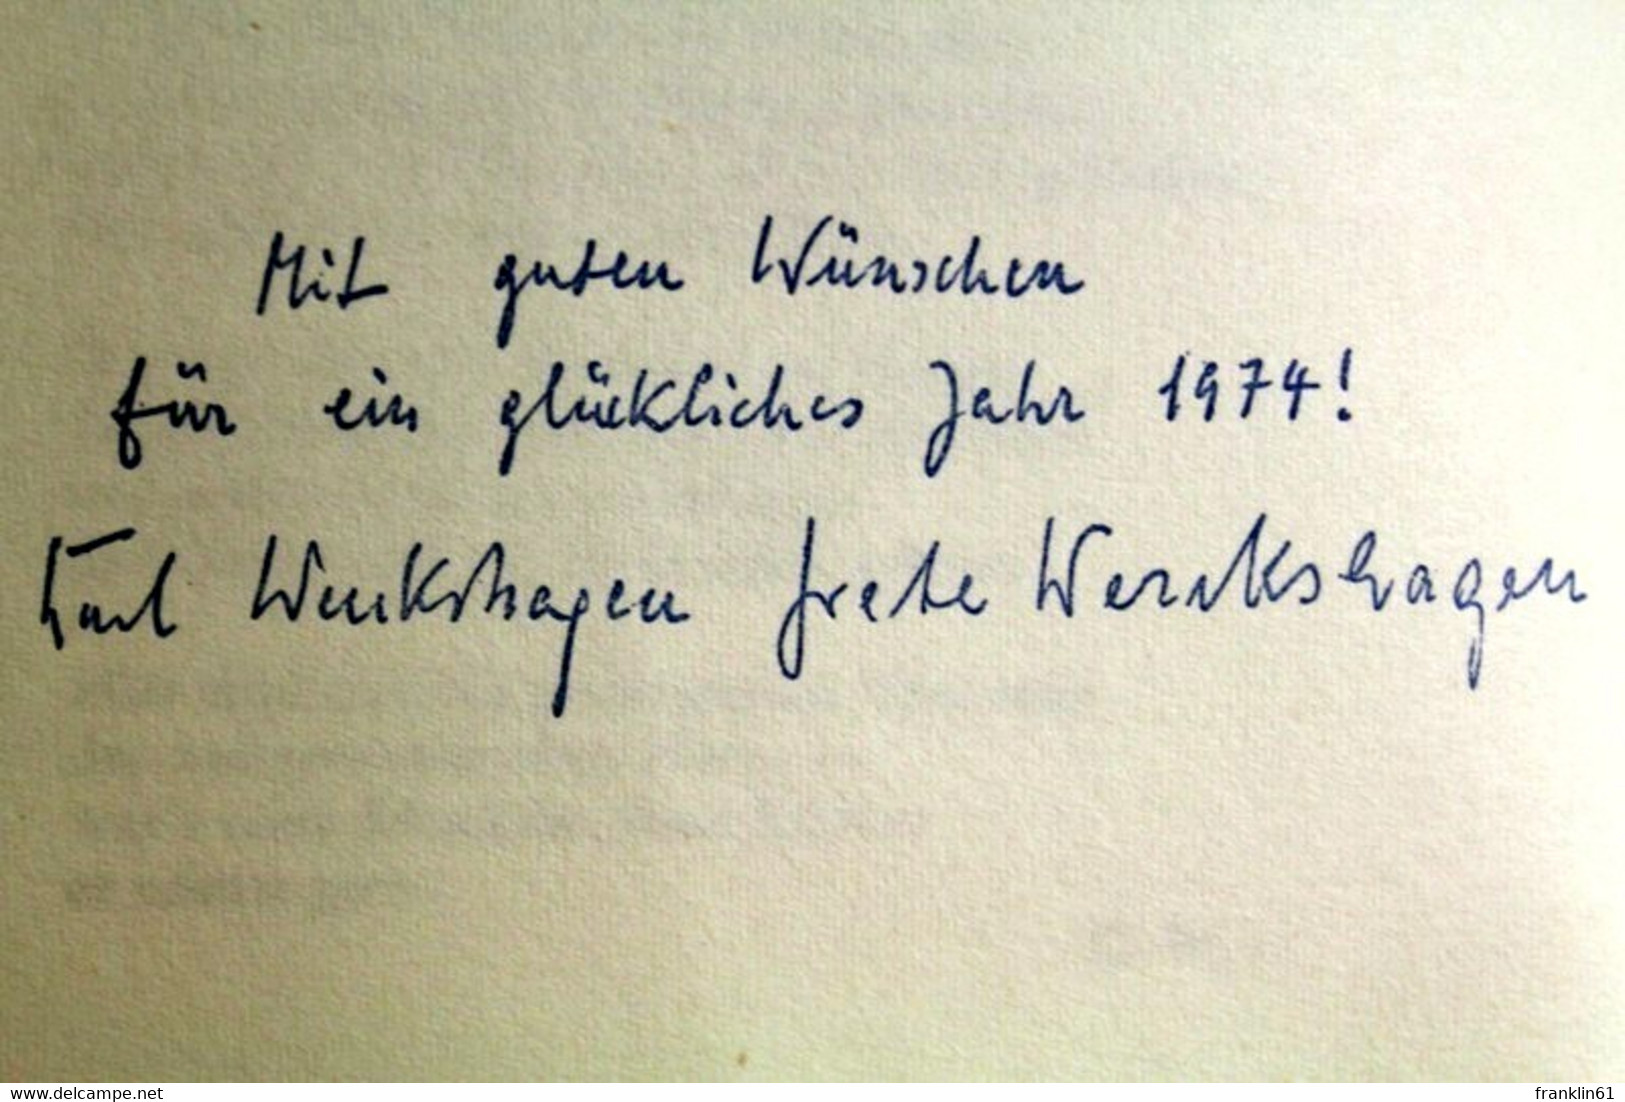 Mit guten Wünschen
für ein glückliches Jahr 1974!
Karl Wenkshagen Grete Werckshagen
www.delcampe.net franklin61